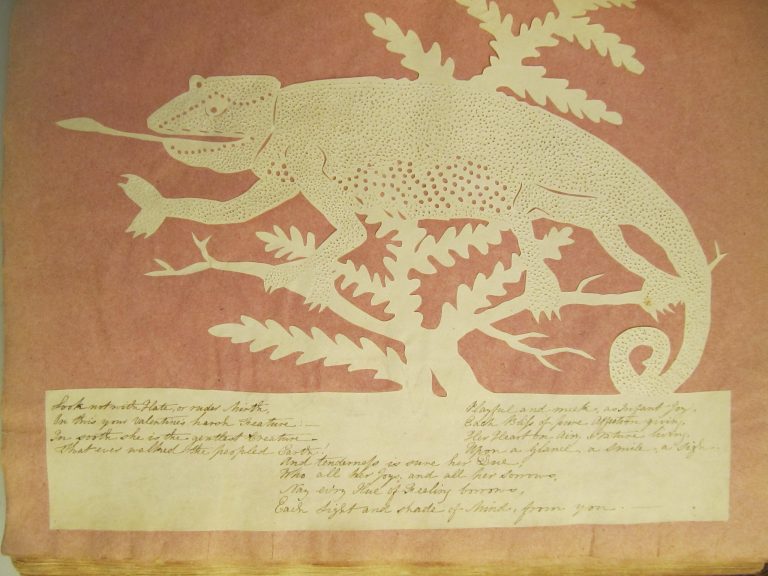 Look not with Hate, or rude Mirth,
On this your Valentine's harsh Creature: —
In sooth she is the gentlest Creature
That ever walked the peopled Earth!
Playful and meek, as Infant Joy,
Each Bliss of pure giving,
Her Heart on Air, living,
Upon a Glance, a Smile, a Sigh.
And tenderness is sure her Due,
Who all her Joys, and all her Sorrows,
Nay every Hue of Feeling borrows,
Each Light and shade of Mind, from you. —